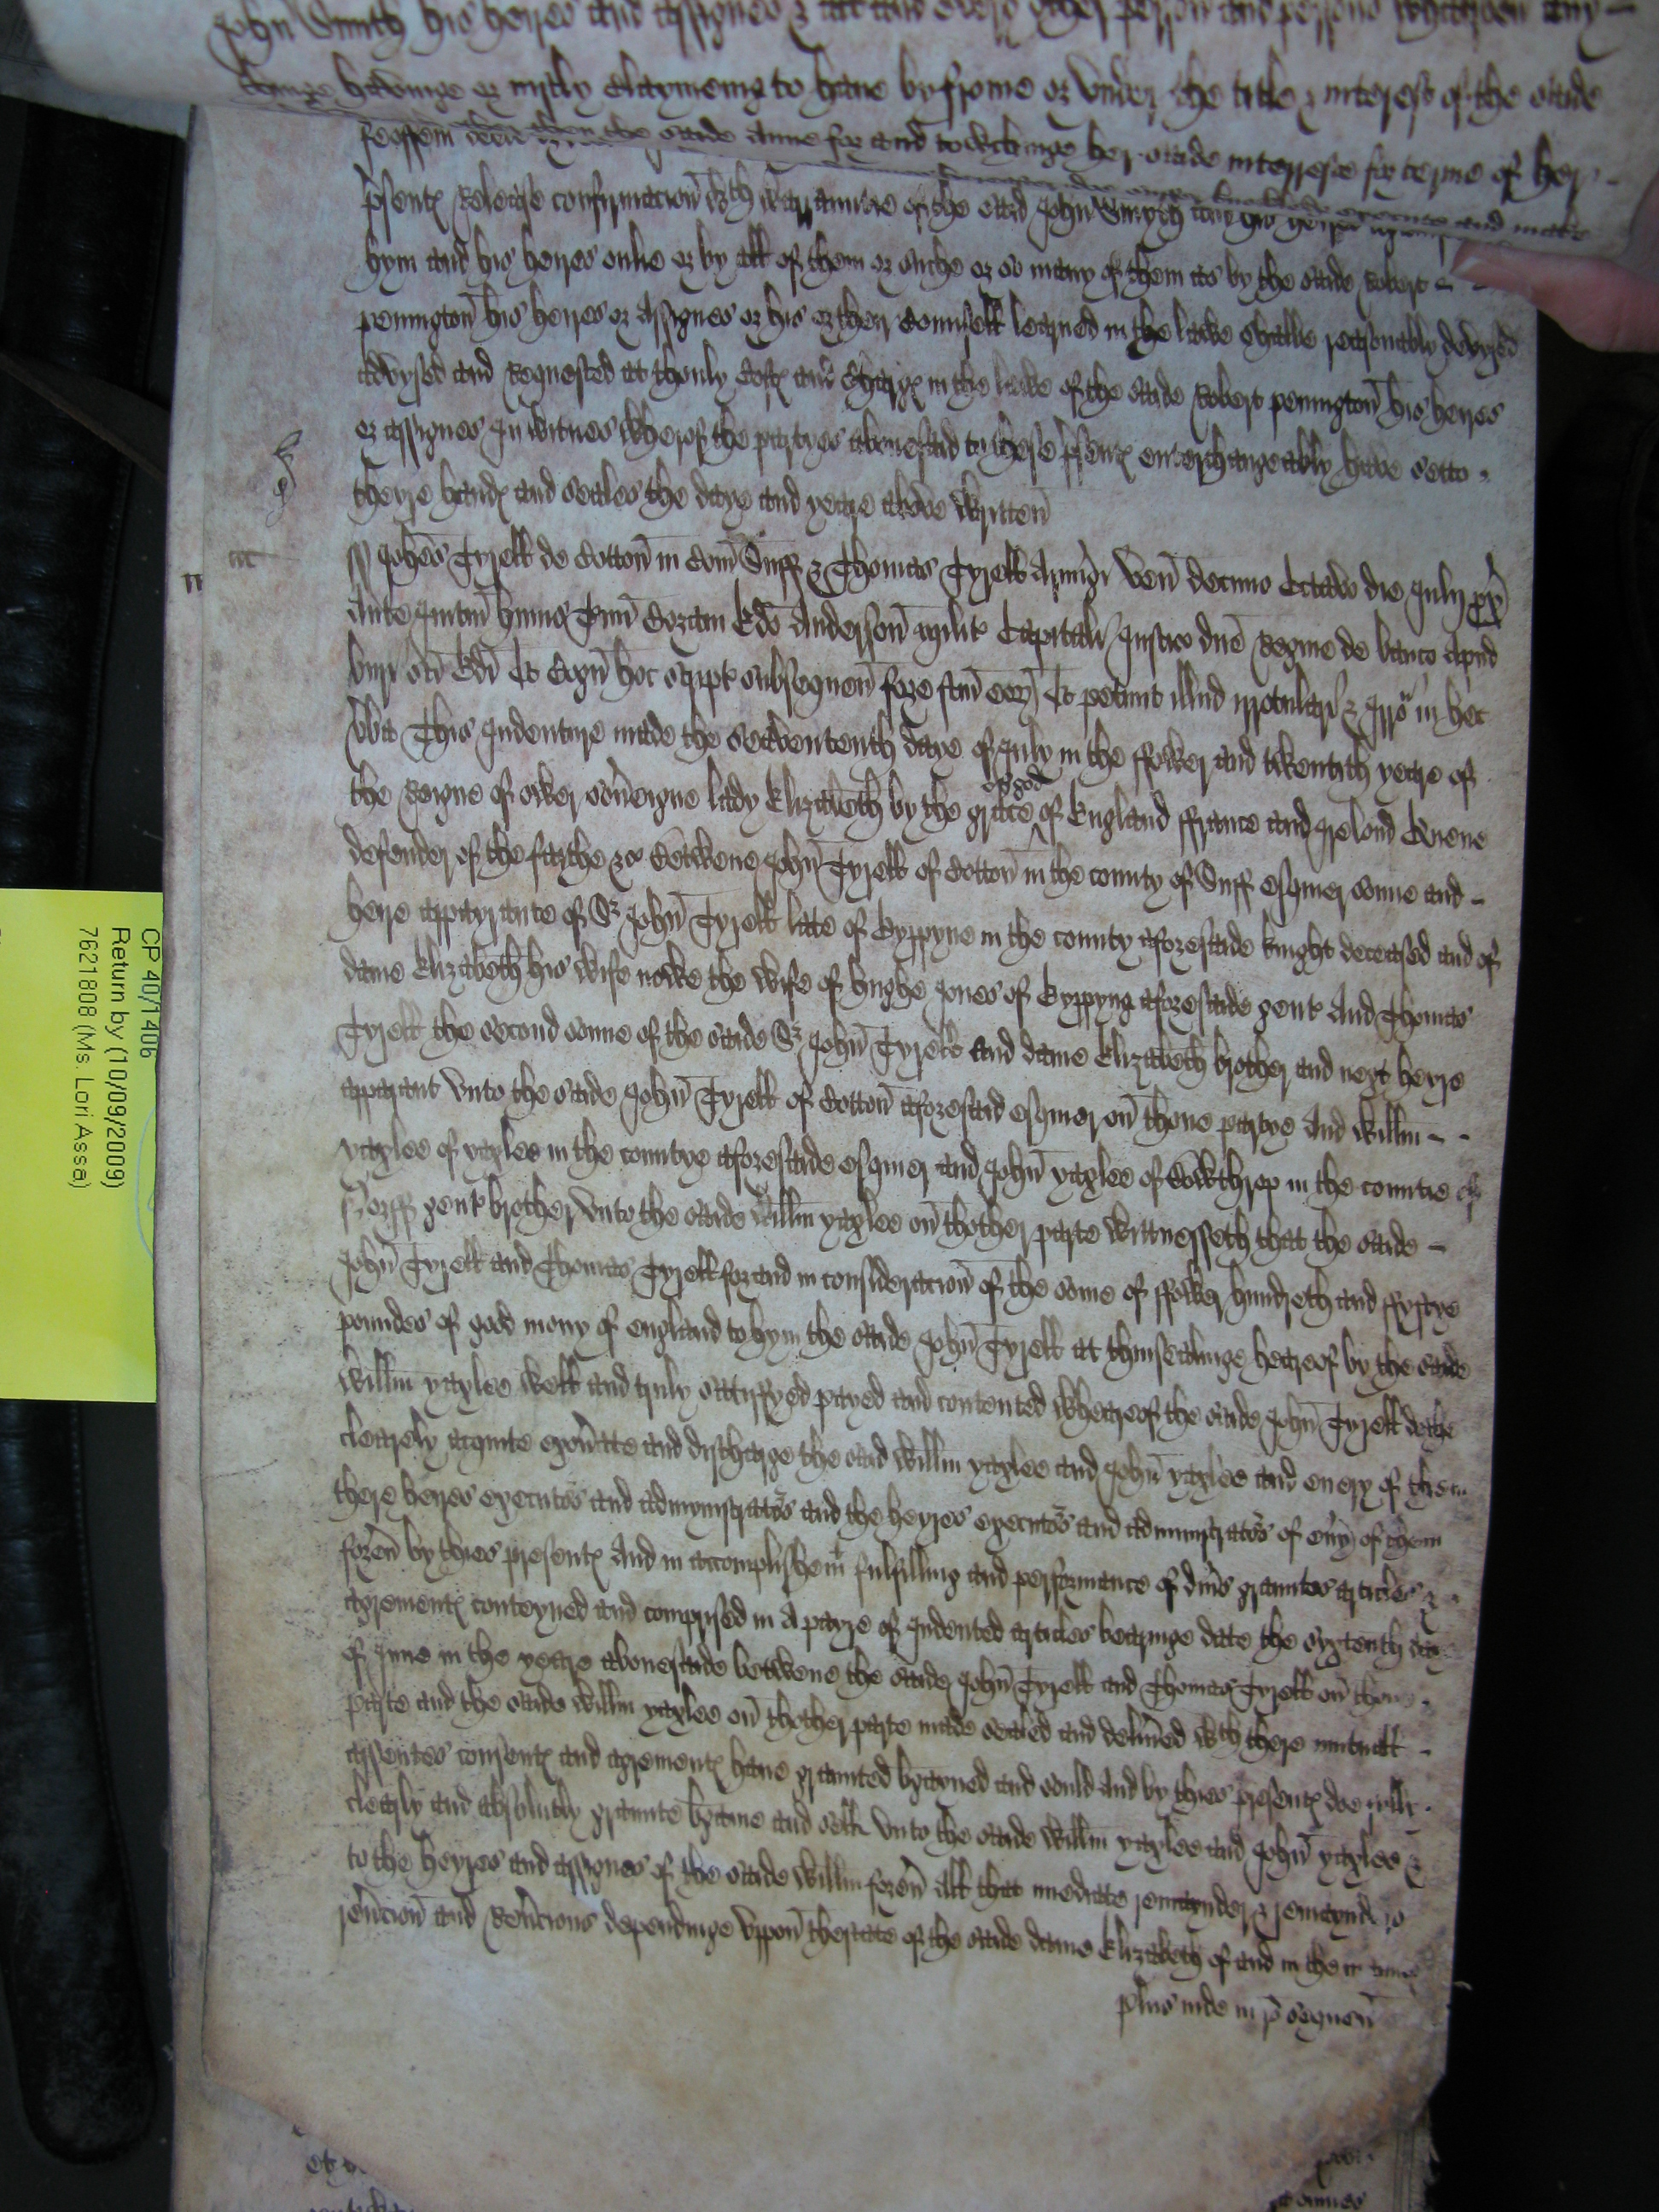 John Smith his heires and assignes & all and every other person and persons whatsoever any
thinge havinge or iustly claymeing to have by frome or under the title & interest of the saide
feoffem
saide Anne for and towchinge her saide interreste for terme of her
psent release confirmacion wth warrantie of the said John Smyth
hym and his heires onlie or by all of them or suche or so many of them as by the saide Robert
penington his heires or assignes or his or their counsell learned in the lawe shalbe reasonably devysed
advysed and Requested at thonly costs and charges in the lawe of the saide Robert penington his heires
or assignes In witnes wherof the partyes abouesaid to these psents enterchangeably have setto
theire hands and seales the daye and yeare above written
Johes Tyrell de Cotton in Com Suff & Thomas Tyrell Armigi ven decimo octavo die July
Ante Justic Anderson milit Capitali Justic dne Regine de banco apud
hoc script subsequen fore fcm eor Et petunt illud irrotulari & Irro in hec
vba This Indenture made the seavententh daye of July in the ffower and twentith yeare of
the Reigne of ower soveigne lady Elizabeth by the grace of god of England ffrance and Irelond Quene
defender of the faithe &c Betwene John Tyrell of Cotton in the county of Suff esquier sonne and
heire apparante of Sr John Tyrell late of Gyppyne in the county aforesaide knight deceased and of
dame Elizabeth his wife nowe the wife of hughe Jones of Gyppyng aforesaide gent And Thomas
Tyrell the second sonne of the saide Sr John Tyrell and dame Elizabeth brother and next heyre
apparant unto the saide John Tyrell of Cotton aforesaid esquier on thone partye And Willm
yaxlee of yaxlee in the countye aforesaide esquier and John yaxlee of Bowthrop in the countie of
Norff gent brother unto the saide Willm yaxlee on thother parte Wittnesseth that the saide
John Tyrell and Thomas Tyrell for and in consideracion of the some of ffower hundreth and ffyftye
poundes of good mony of england to hym the saide John Tyrell at thinsealinge heareof by the saide
Willm yaxlee well and truly satisfyed payed and contented wheareof the saide John Tyrell dothe
clearely acquite exonate and discharge the said Willm yaxlee and John yaxlee and euery of them
there heires executors and admynistrators and the heyres executors and administrators of euy of them
foreu by thies presents And in accomplishemt fulfilling and performance of diuers grauntes articles &
agrements conteyned and comprised in A payre of Indented articles bearinge date the syxtenth day
of June in the yeare abouesaide betwene the saide John Tyrell and Thomas Tyrell on thone
parte and the saide Willm yaxlee on thother parte made sealed and delived wth there mutuall
assentes consents and agrements haue graunted bgayned and sould And by thies presents doe fully
clearly and absolutly graunte bgaine and sell unto the saide Willm yaxlee and John yaxlee &
to the heyres and assignes of the saide Willm foreu All that imediate remaynder & remaynders
revcion and Revcions dependinge uppon thestate of the saide dame Elizabeth of and in the
plus inde in p sequen
CP 40/1406
Return by (10/09/2009)
7621808 (Ms. Lori Assa)